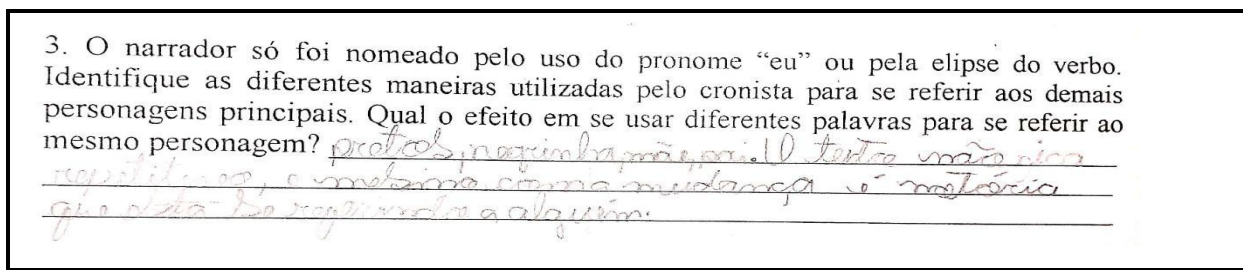 3. O narrador só foi nomeado pelo uso do pronome “eu” ou pela elipse do verbo.
Identifique as diferentes maneiras utilizadas pelo cronista para se referir aos demais
personagens principais. Qual o efeito em se usar diferentes palavras para se referir ao
mesmo personagem? pretos, negrinha, mãe, pai. O texto não fica
repetitivo, e mesmo com a mudança é notória
que está se referindo a alguém.